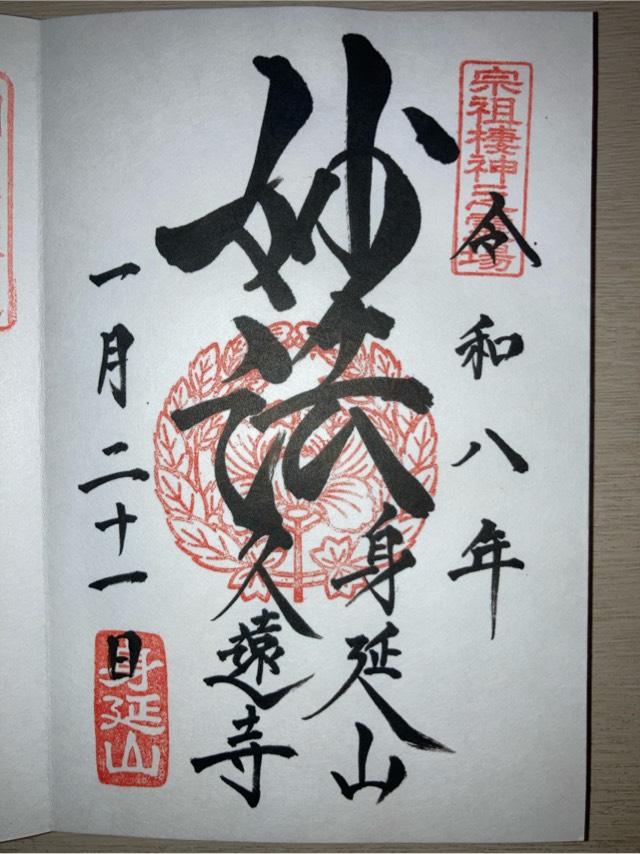 宗祖棲神之霊場
令和八年
妙法
身延山
久遠寺
一月二十一日
身延山